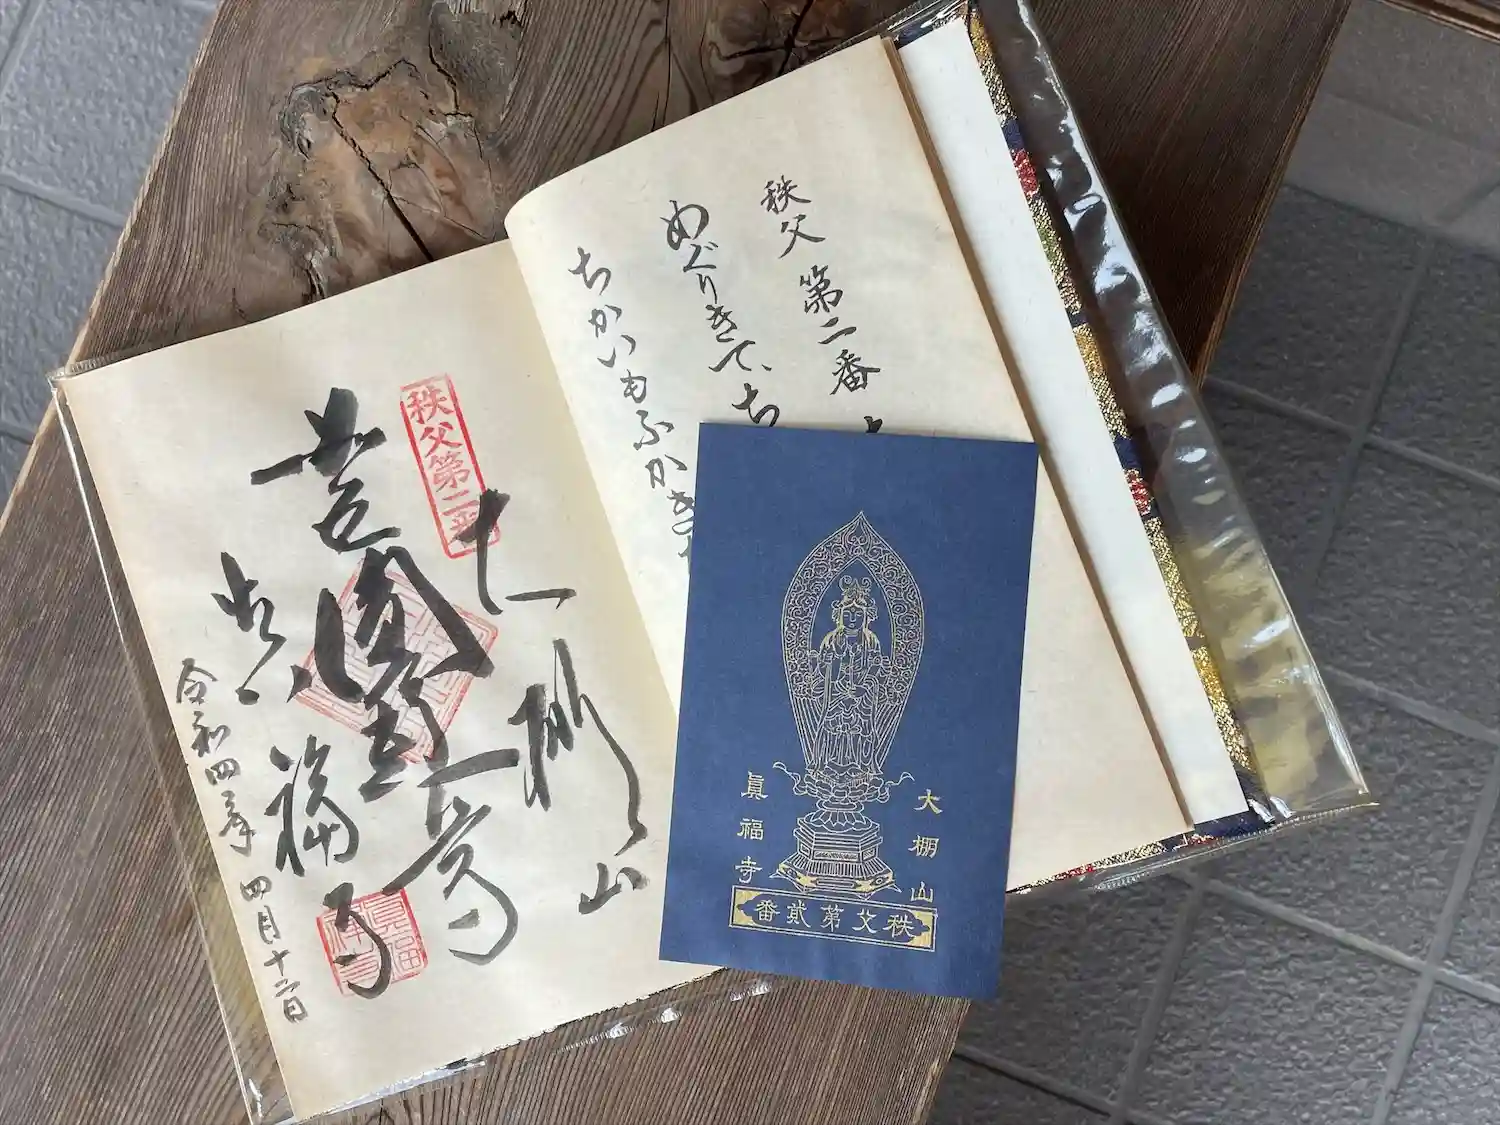 秩父 第二番
めぐりきて
ちかいもふかき
秩父第二番
大棚山
真福寺
令和四年 四月十二日
大棚山
眞福寺
秩父第貳番